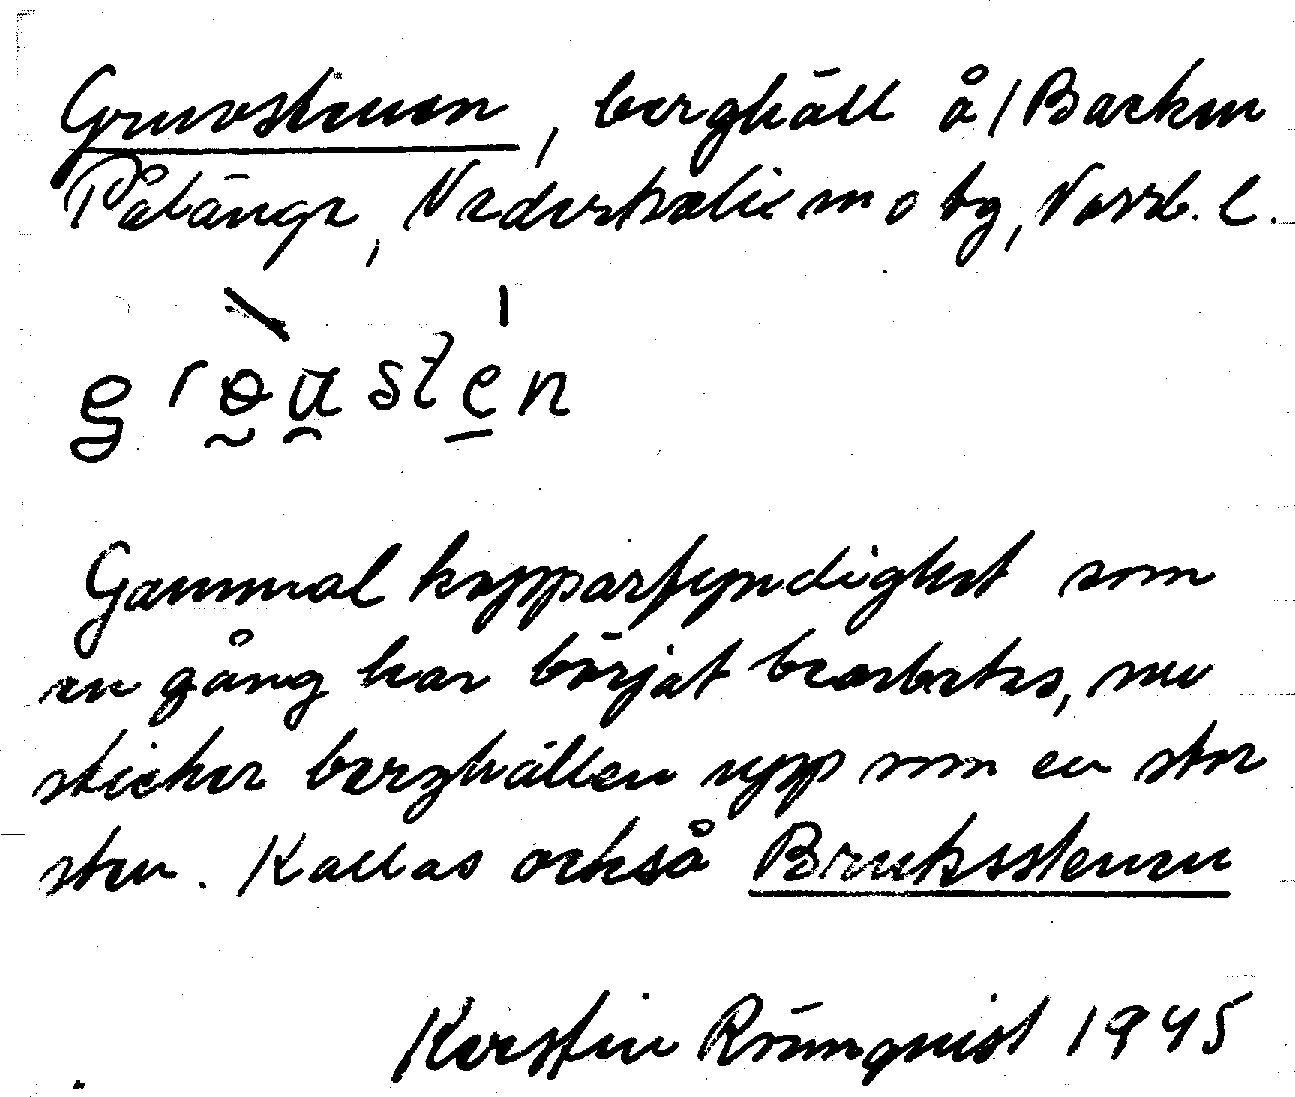 Gruvstenen, berghäll å/Backen
Pålänge, Nederkalix sn o tg, Norrb. l.
grɵu̯stēn
Gammal kopparfyndighet som
en gång har börjat bearbetas, nu
sticker berghällen upp som en stor
sten. Kallas också Bruksstenen
Kerstin Rönnqvist 1945